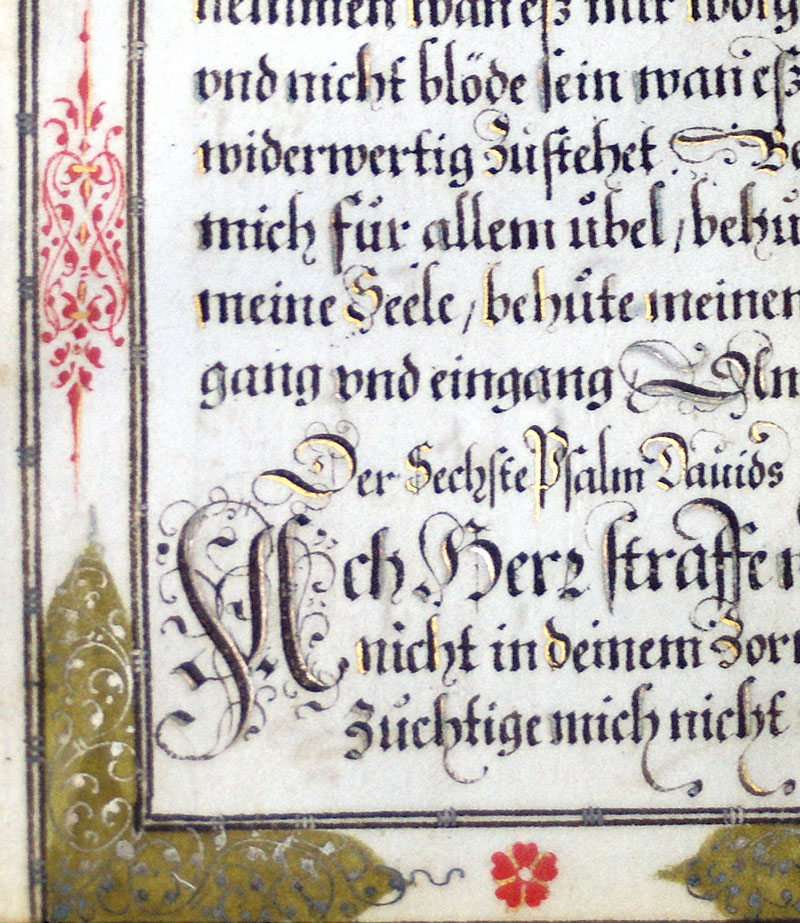 nemmen wan eß mir wolg
vnd nicht blöde sein wan eß
widerwertig Zůstehet. Be
mich für allem übel, behů
meine Seele, behůte meinen
gang vnd eingang Am
Der Sechste Psalm Dauids
Ach Herr straffe m
nicht in deinem Zorn
Zůchtige mich nicht